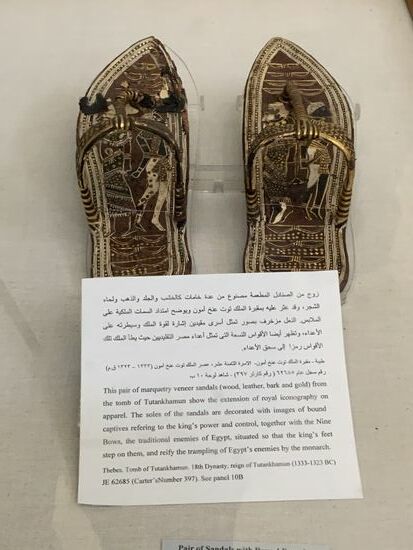 زوج من الصنادل المطعمة مصنوع من عدة خامات كالخشب والجلد والذهب ولحاء
الشجر، وقد عثر عليه بمقبرة الملك توت عنخ آمون ويوضح امتداد السمات الملكية على
الملابس. النعل مزخرف بصور تمثل أسرى مقيدين إشارة لقوة الملك وسيطرته على
الأعداء، وتظهر أيضا الأقواس التسعة التى تمثل أعداء مصر التقليديين حيث يطأ الملك تلك
الأقواس رمزا إلى سحق الأعداء.
طيبة - مقبرة الملك توت عنخ آمون. الأسرة الثامنة عشر، عصر الملك توت عنخ آمون (١٣٣٣ - ١٣٢٣ ق.م)
رقم سجل عام ٦٢٦٨٥ (رقم كارتر ٣٩٧) - شاهد لوحة ١٠ ب.
This pair of marquetry veneer sandals (wood, leather, bark and gold) from
the tomb of Tutankhamun show the extension of royal iconography on
apparel. The soles of the sandals are decorated with images of bound
captives refering to the king's power and control, together with the Nine
Bows, the traditional enemies of Egypt, situated so that the king's feet
step on them, and reify the trampling of Egypt's enemies by the monarch.
Thebes. Tomb of Tutankhamun. 18th Dynasty, reign of Tutankhamun (1333-1323 BC)
JE 62685 (Carter'sNumber 397). See panel 10B
Pair of Sandals with